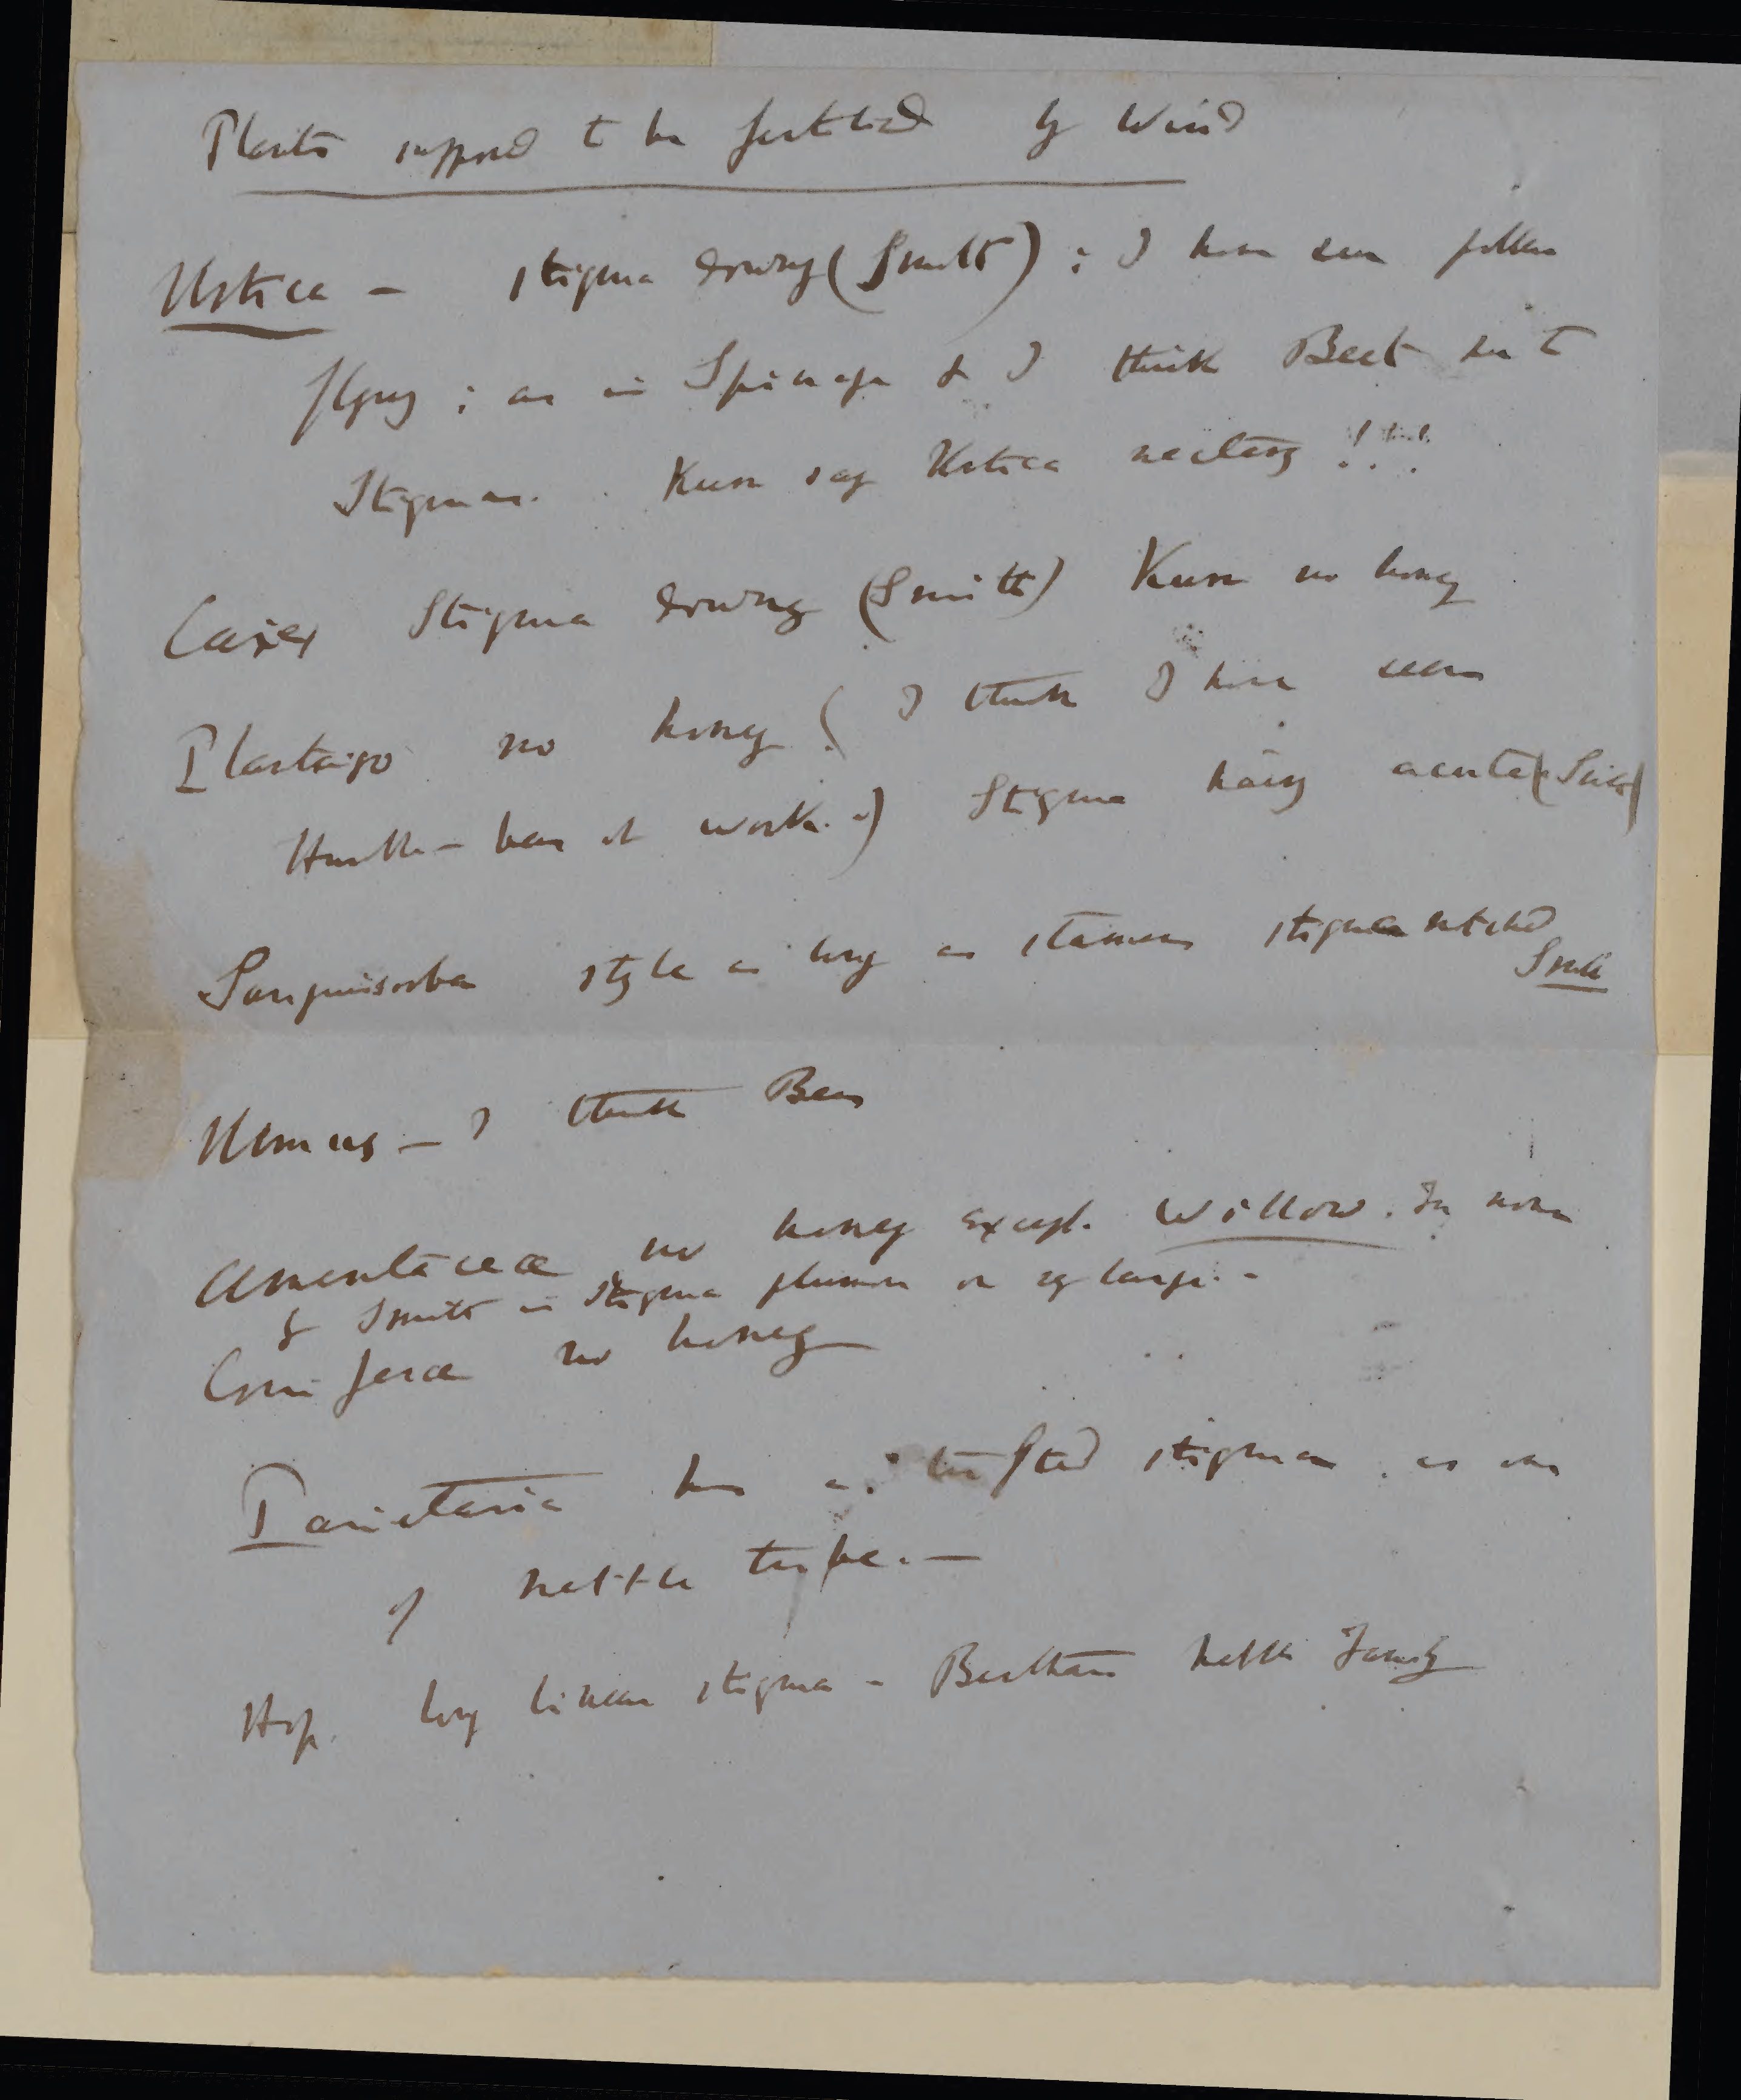 Plants supposed to be fertilised by Wind
Urtica — stigma downy (Smith) : I have seen pollen
flying ; as in Spinage & I think Beet
Stigmas. Kurr says Urtica nectary !!!
Carex Stigma downy (Smith) Kurr no honey
Plantago no honey (I think I have seen
Humble-bees at work.) Stigma hairy acute (Smith)
Sanguisorba style as long as stamens stigma notched
Smith
Ulmus — I think Bees
Amentaceæ no honey except. Willow. In none
of Smith is Stigma plumose or say large. -
Coniferæ no honey
Parietaria has a tufted stigma, as one
of nettle tribe. —
Hop. long linear stigma - nettle Family